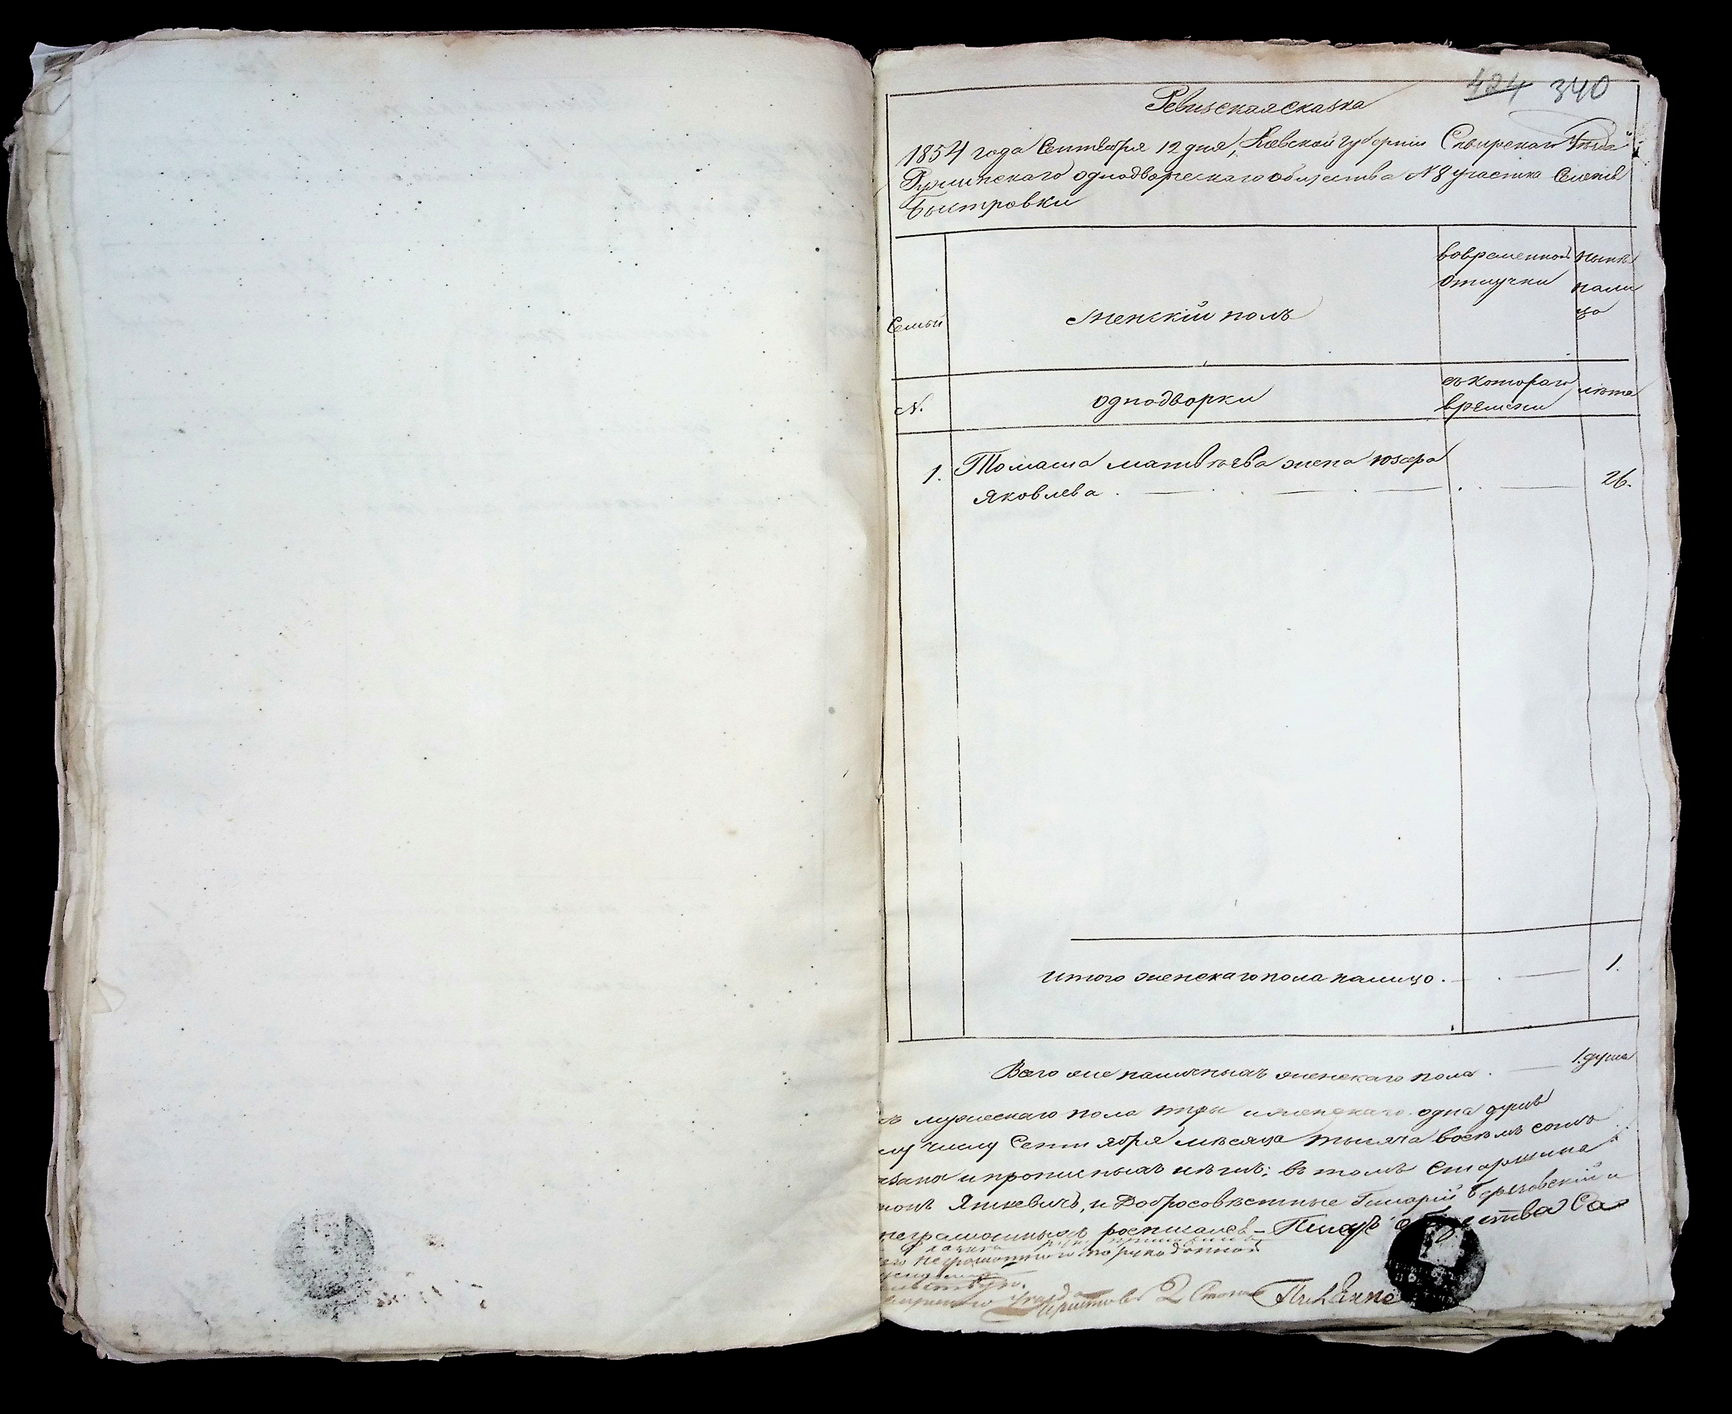 424 340
Ревизская сказка
1854 года Сентября 12 дня, Киевской губернии Сквирскаго Уезда
Ружинскаго однодворческаго общества №8 участка Селенія
Быстровки
Семьи
женскій полъ
вовременной отлучки
ныне на лицо
№.
однодворки
съ котораго времени
лета
1. Томаша матвѣева жена юзефа
яковлева . — . — . — . — 26.
итого женскаго пола налицо . — . — 1.
Всего же наличныхъ женскаго пола . — 1. душа
мужескаго пола три и женскаго одна душа
числу Сентября месяца тысяча восемь сотъ
и прописныхъ нетъ; въ томъ Старшина
Яцкевичъ, и Добросовестные Гиларій
неграмотныхъ росписался – Писарь общества Са